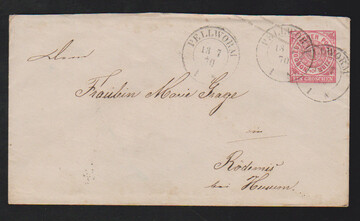 PELLWORM
13 7
70
PELLWORM
13
70
Fräulein Marie
in
Rödemis
bei Husum.